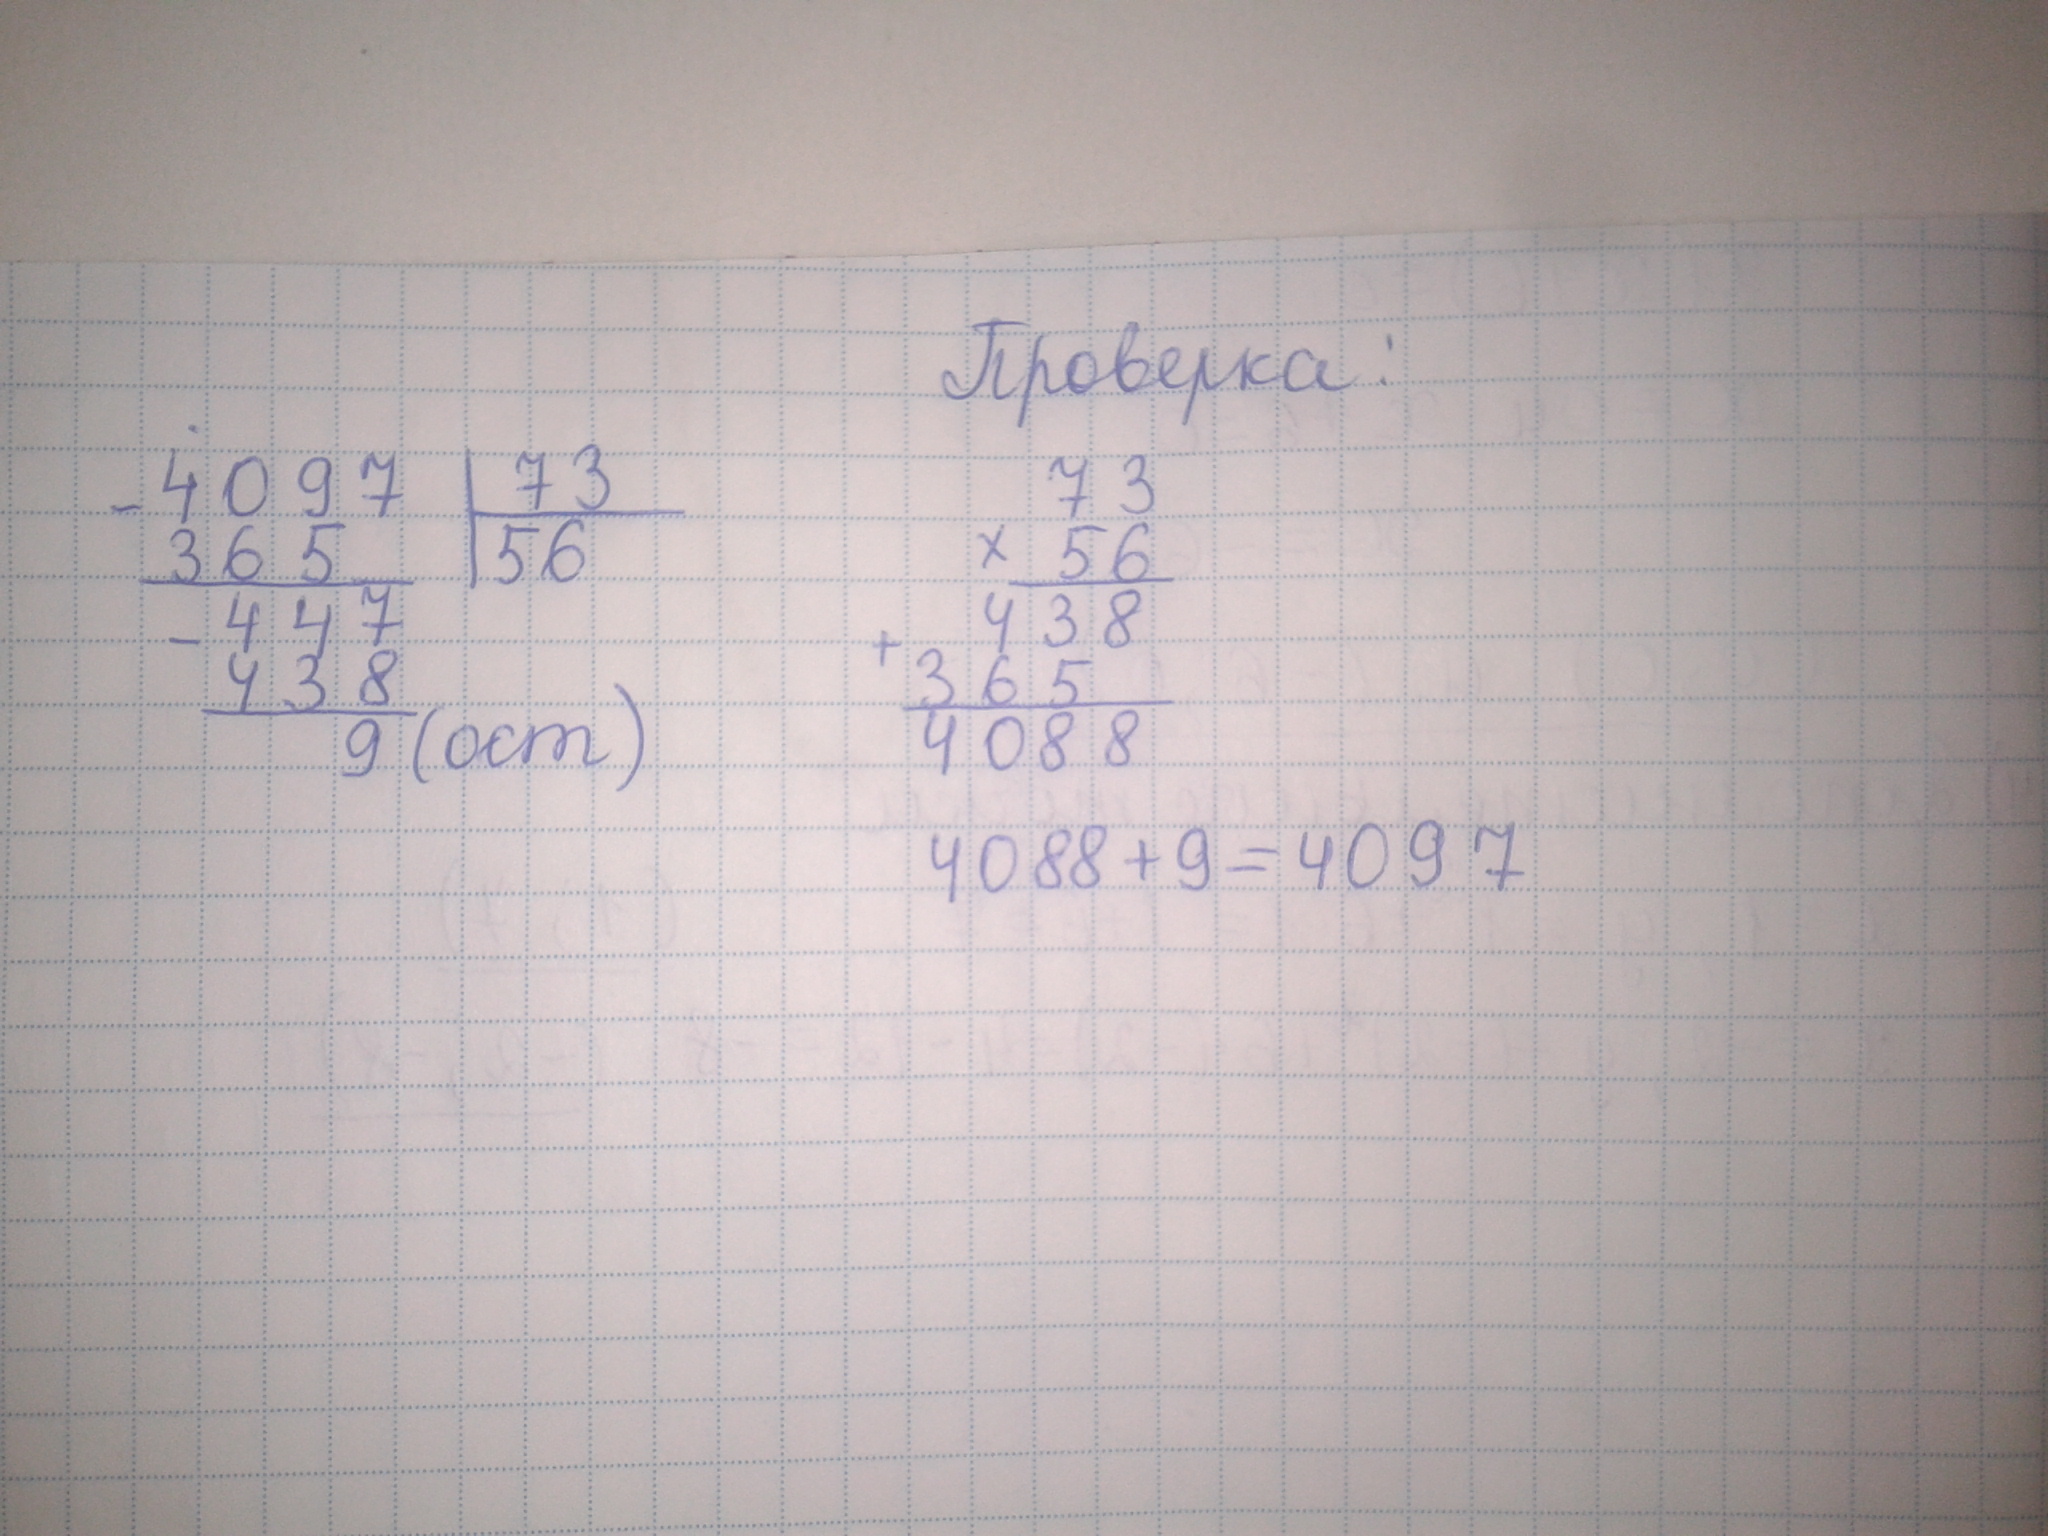 - 4097 | 73
365 | 56
- 447
438
9 (ост)
Проверка:
73
× 56
438
+ 365
4088
4088 + 9 = 4097